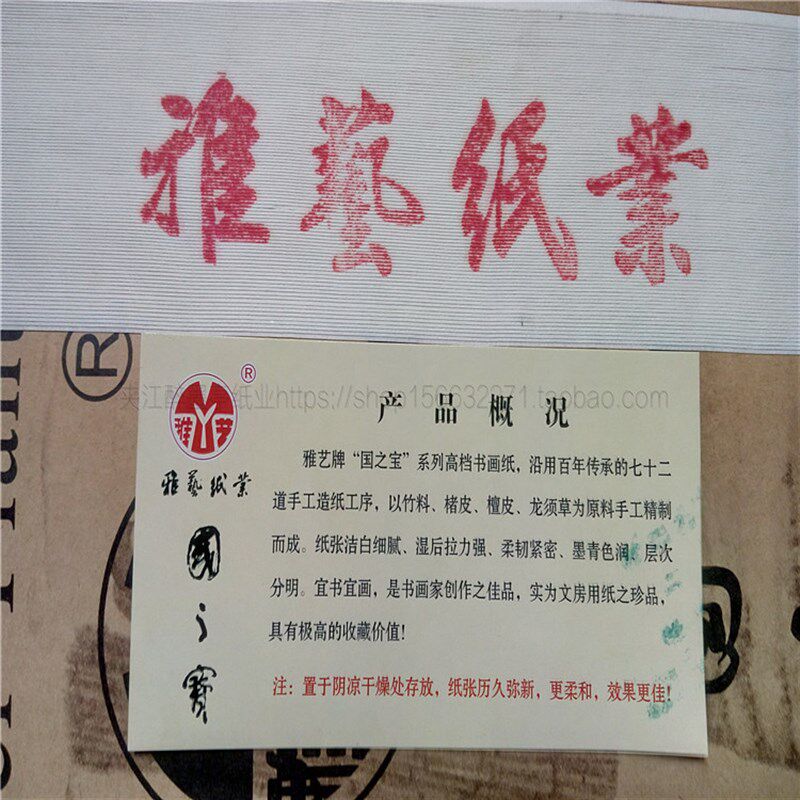 雅藝纸業
®
®
夹江
纸业https://shop156632271.taobao.com
雅艺
雅藝纸業
國之寶
产品概况
雅艺牌“国之宝”系列高档书画纸，沿用百年传承的七十二
道手工造纸工序，以竹料、楮皮、檀皮、龙须草为原料手工精制
而成。纸张洁白细腻、湿后拉力强、柔韧紧密、墨青色润、层次
分明。宜书宜画，是书画家创作之佳品，实为文房用纸之珍品，
具有极高的收藏价值！
注：置于阴凉干燥处存放，纸张历久弥新，更柔和，效果更佳！